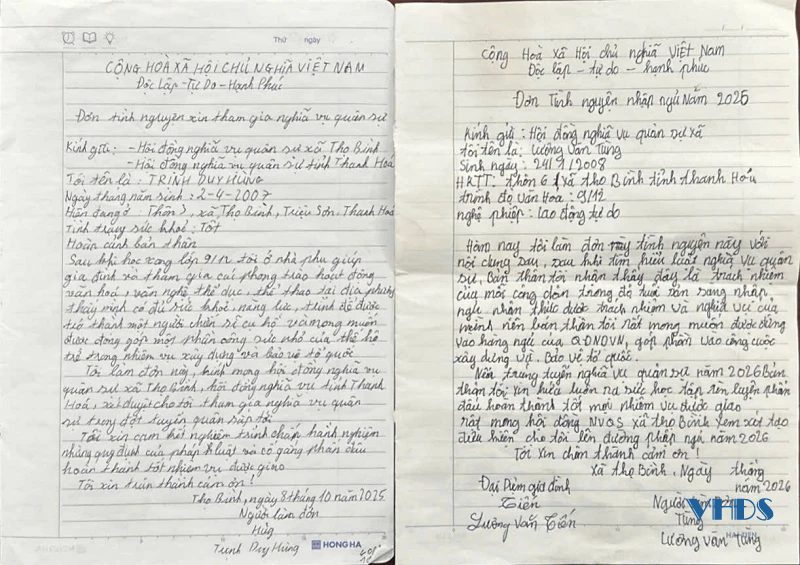 Thứ ngày
CỘNG HOÀ XÃ HỘI CHỦ NGHĨA VIỆT NAM
Độc lập - Tự Do - Hạnh Phúc
Đơn tình nguyện xin tham gia nghĩa vụ quân sự
Kính gửi: - Hội đồng nghĩa vụ quân sự xã Thọ Bình
- Hội đồng nghĩa vụ quân sự tỉnh Thanh Hoá
Tôi tên là: TRỊNH DUY HÙNG
Ngày tháng năm sinh: 2-4-2007
Hiện đang ở: Thôn 2, xã Thọ Bình, Triệu Sơn, Thanh Hoá
Tình trạng sức khoẻ: Tốt
Hoàn cảnh bản thân
Sau khi học xong lớp 9/12 tôi ở nhà phụ giúp
gia đình và tham gia các phong trào hoạt động
văn hoá, văn nghệ thể dục, thể thao tại địa phương
thấy mình có đủ sức khoẻ, năng lực, trình độ để được
trở thành một người chiến sĩ cụ hồ và mong muốn
được đóng góp một phần công sức nhỏ của thế hệ
trẻ trong nhiệm vụ xây dựng và bảo vệ tổ quốc
Tôi làm đơn này, kính mong hội đồng nghĩa vụ
quân sự xã Thọ Bình, hội đồng nghĩa vụ tỉnh Thanh
Hoá, xét duyệt cho tôi tham gia nghĩa vụ quân
sự trong đợt tuyển quân sắp tới
Tôi xin cam kết nghiêm chỉnh chấp hành nghiêm
những quy đươc của pháp luật và cố gắng phấn đấu
hoàn thành tốt nhiệm vụ được giao
Tôi xin trân thành cảm ơn!
Thọ Bình, ngày 8 tháng 10 năm 2025
Người làm đơn
Hùng
Trịnh Duy Hùng
HONG HA
Cộng Hoà xã Hội chủ nghĩa Việt Nam
Độc lập - tự do - hạnh phúc
Đơn Tình nguyện nhập ngũ Năm 2025
Kính gửi: Hội đồng nghĩa vụ quân sự xã
tôi tên là: Lương Văn Tùng
Sinh ngày: 24/9/2008
HKTT: thôn 6 xã thọ Bình tỉnh thanh Hoá
trình độ văn Hoá: 9/12
nghề nghiệp: Lao động tự do
Hôm nay tôi làm đơn này tình nguyện này với
nội dung sau, sau khi tìm hiểu luật nghĩa vụ quân
sự, Bản thân tôi nhận thấy đây là trách nhiệm
của mỗi công dân trong độ tuổi sẵn sàng nhập
ngũ, nhận thức được trách nhiệm và nghĩa vụ của
mình nên bản thân tôi rất mong muốn được đứng
vào hàng ngũ của QĐNDVN, góp phần vào công cuộc
xây dựng và Bảo vệ tổ quốc.
Nếu trúng tuyển nghĩa vụ quân sự năm 2026 Bản
thân tôi xin hứa luôn ra sức học tập rèn luyện phấn
đấu hoàn thành tốt mọi nhiệm vụ được giao
rất mong hội đồng NVQS xã thọ Bình xem xét tạo
điều kiện cho tôi lên đường nhập ngũ năm 2026
Tôi Xin chân thành cảm ơn!
Xã thọ Bình, Ngày tháng
năm 2026
Đại Diện gia đình
Tiến
Lương Văn Tiến
Người
Tùng
Lương Văn Tùng
VHDS